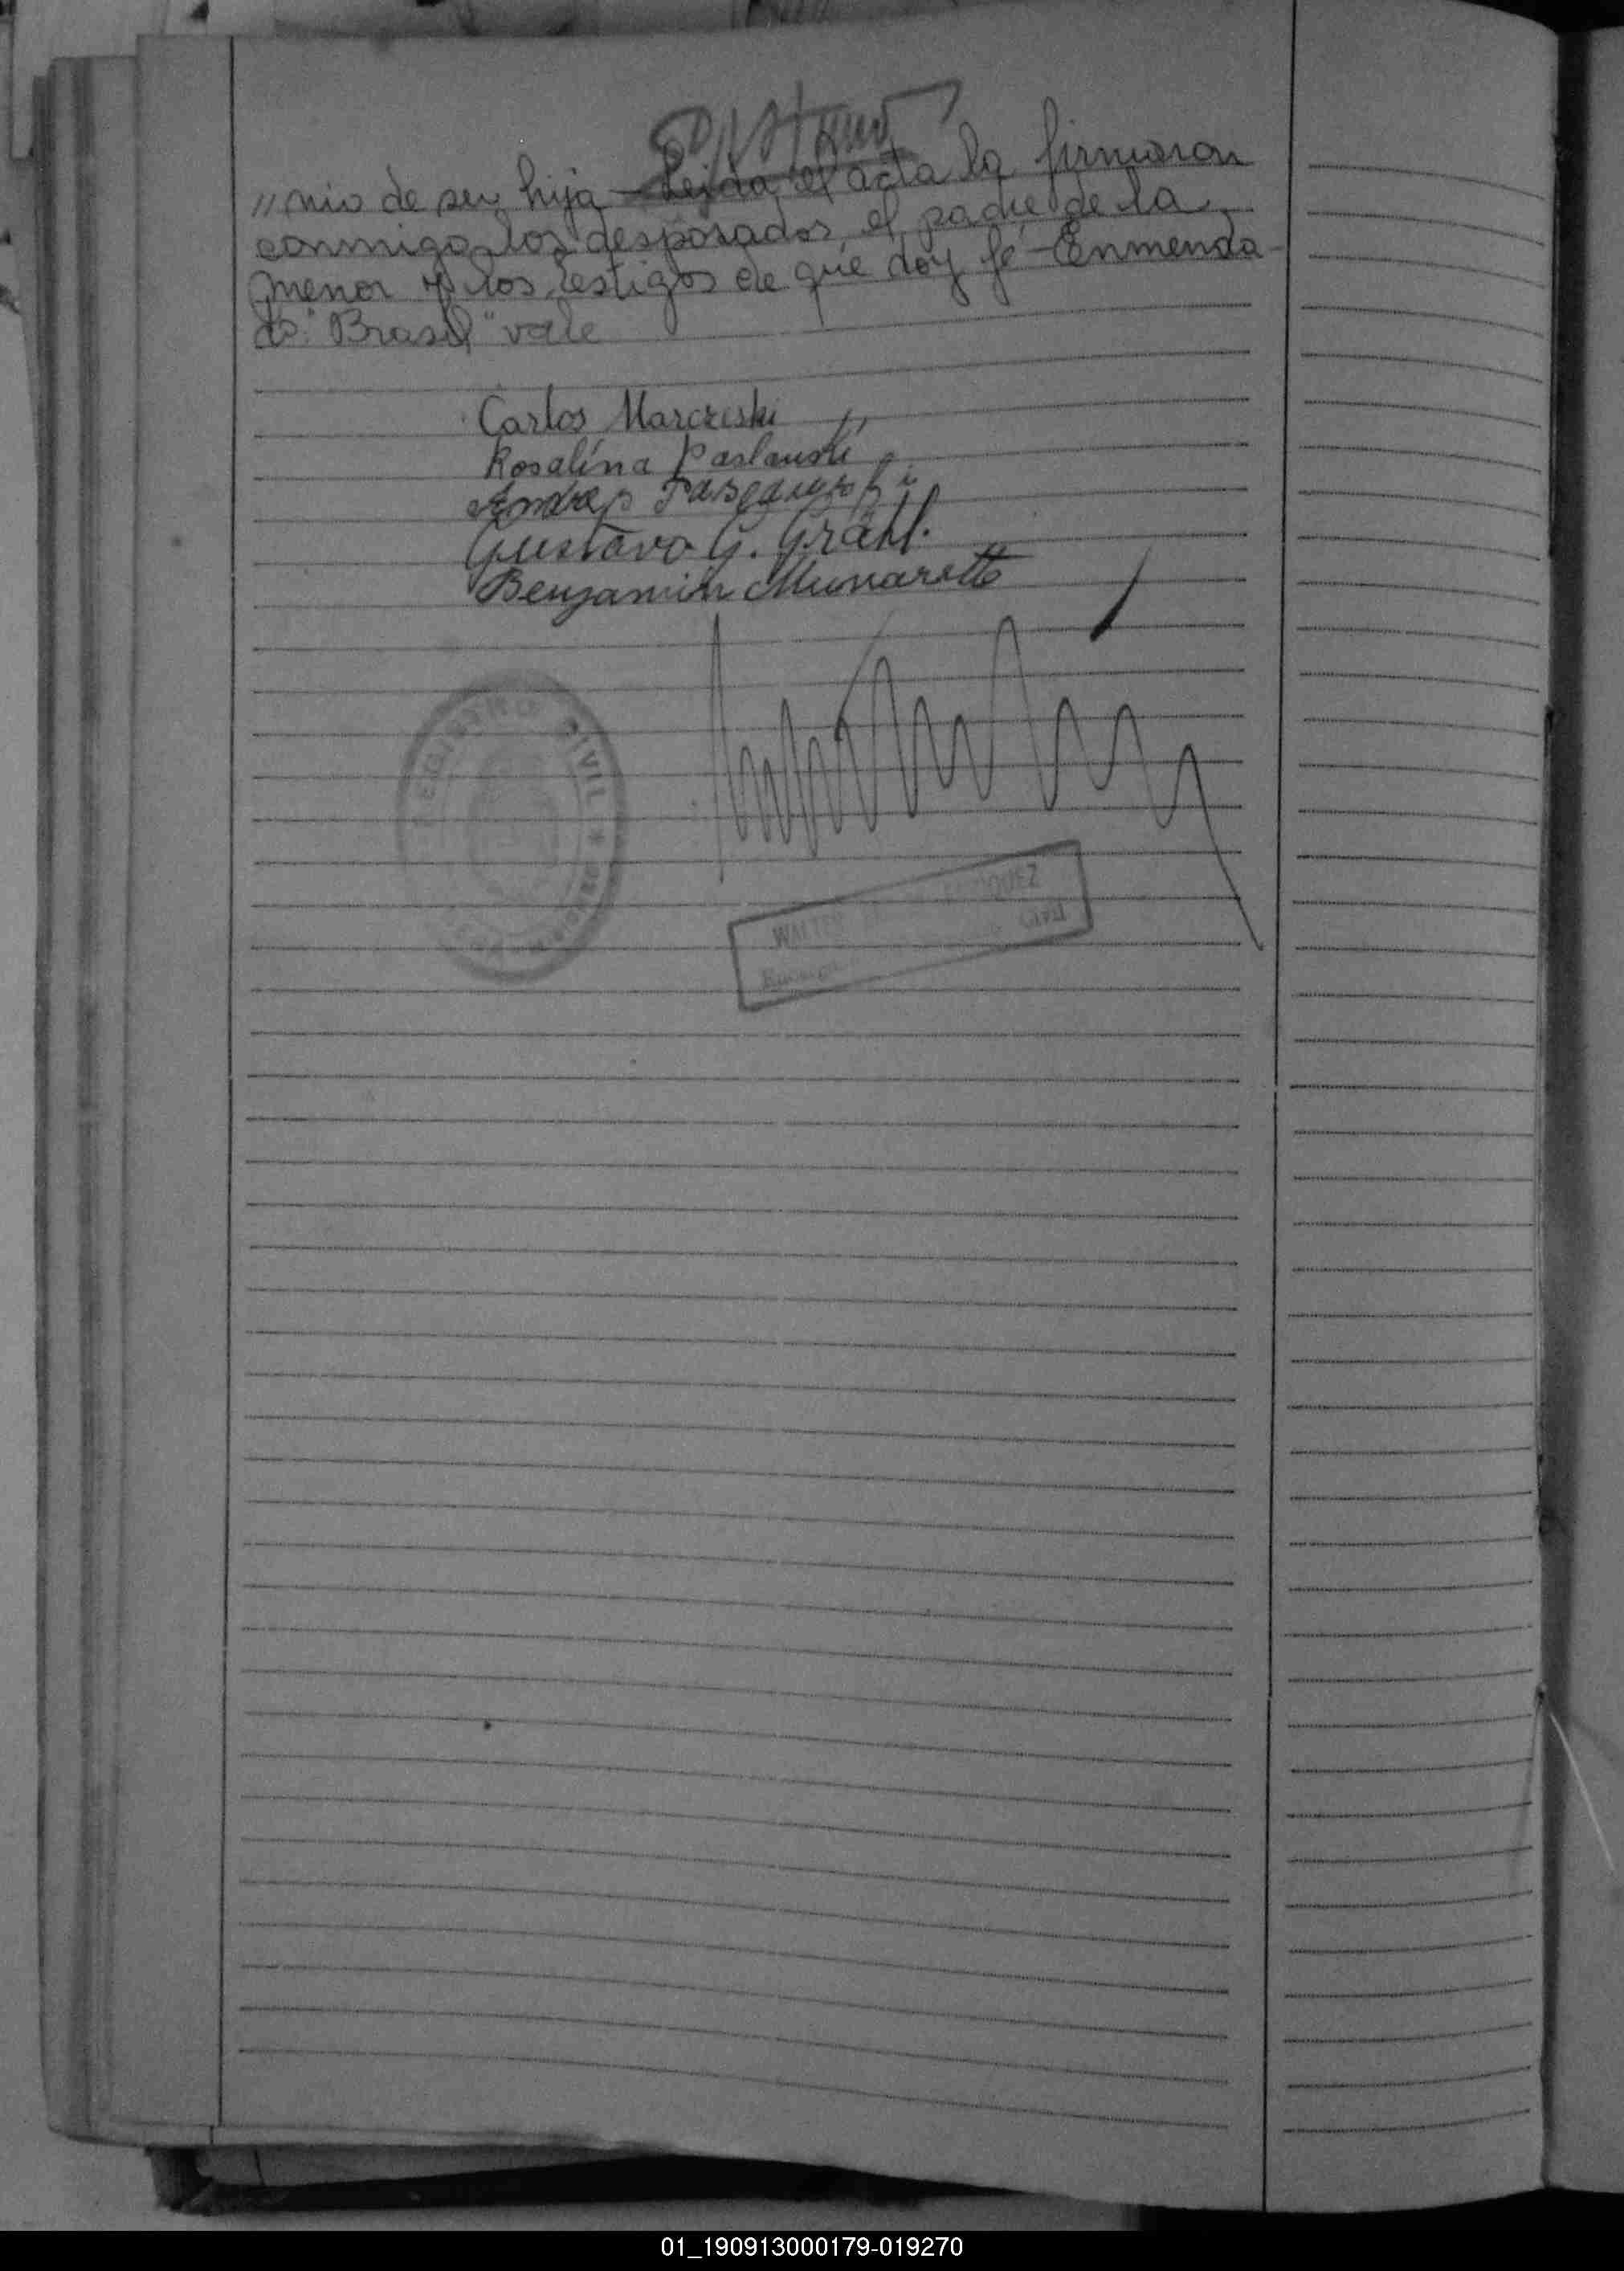 " nio de su hija - Leida el acta la firmaron
conmigo los desposados, el padre de la
menor y los testigos de que doy fé - Enmenda-
do: "Brasil" vale
Carlos Marczeski
Rosalina Paslauski
Gustavo G. Grähl.
Benjamin Munaretto
REGISTRO CIVIL *
WALTER
01_190913000179-019270